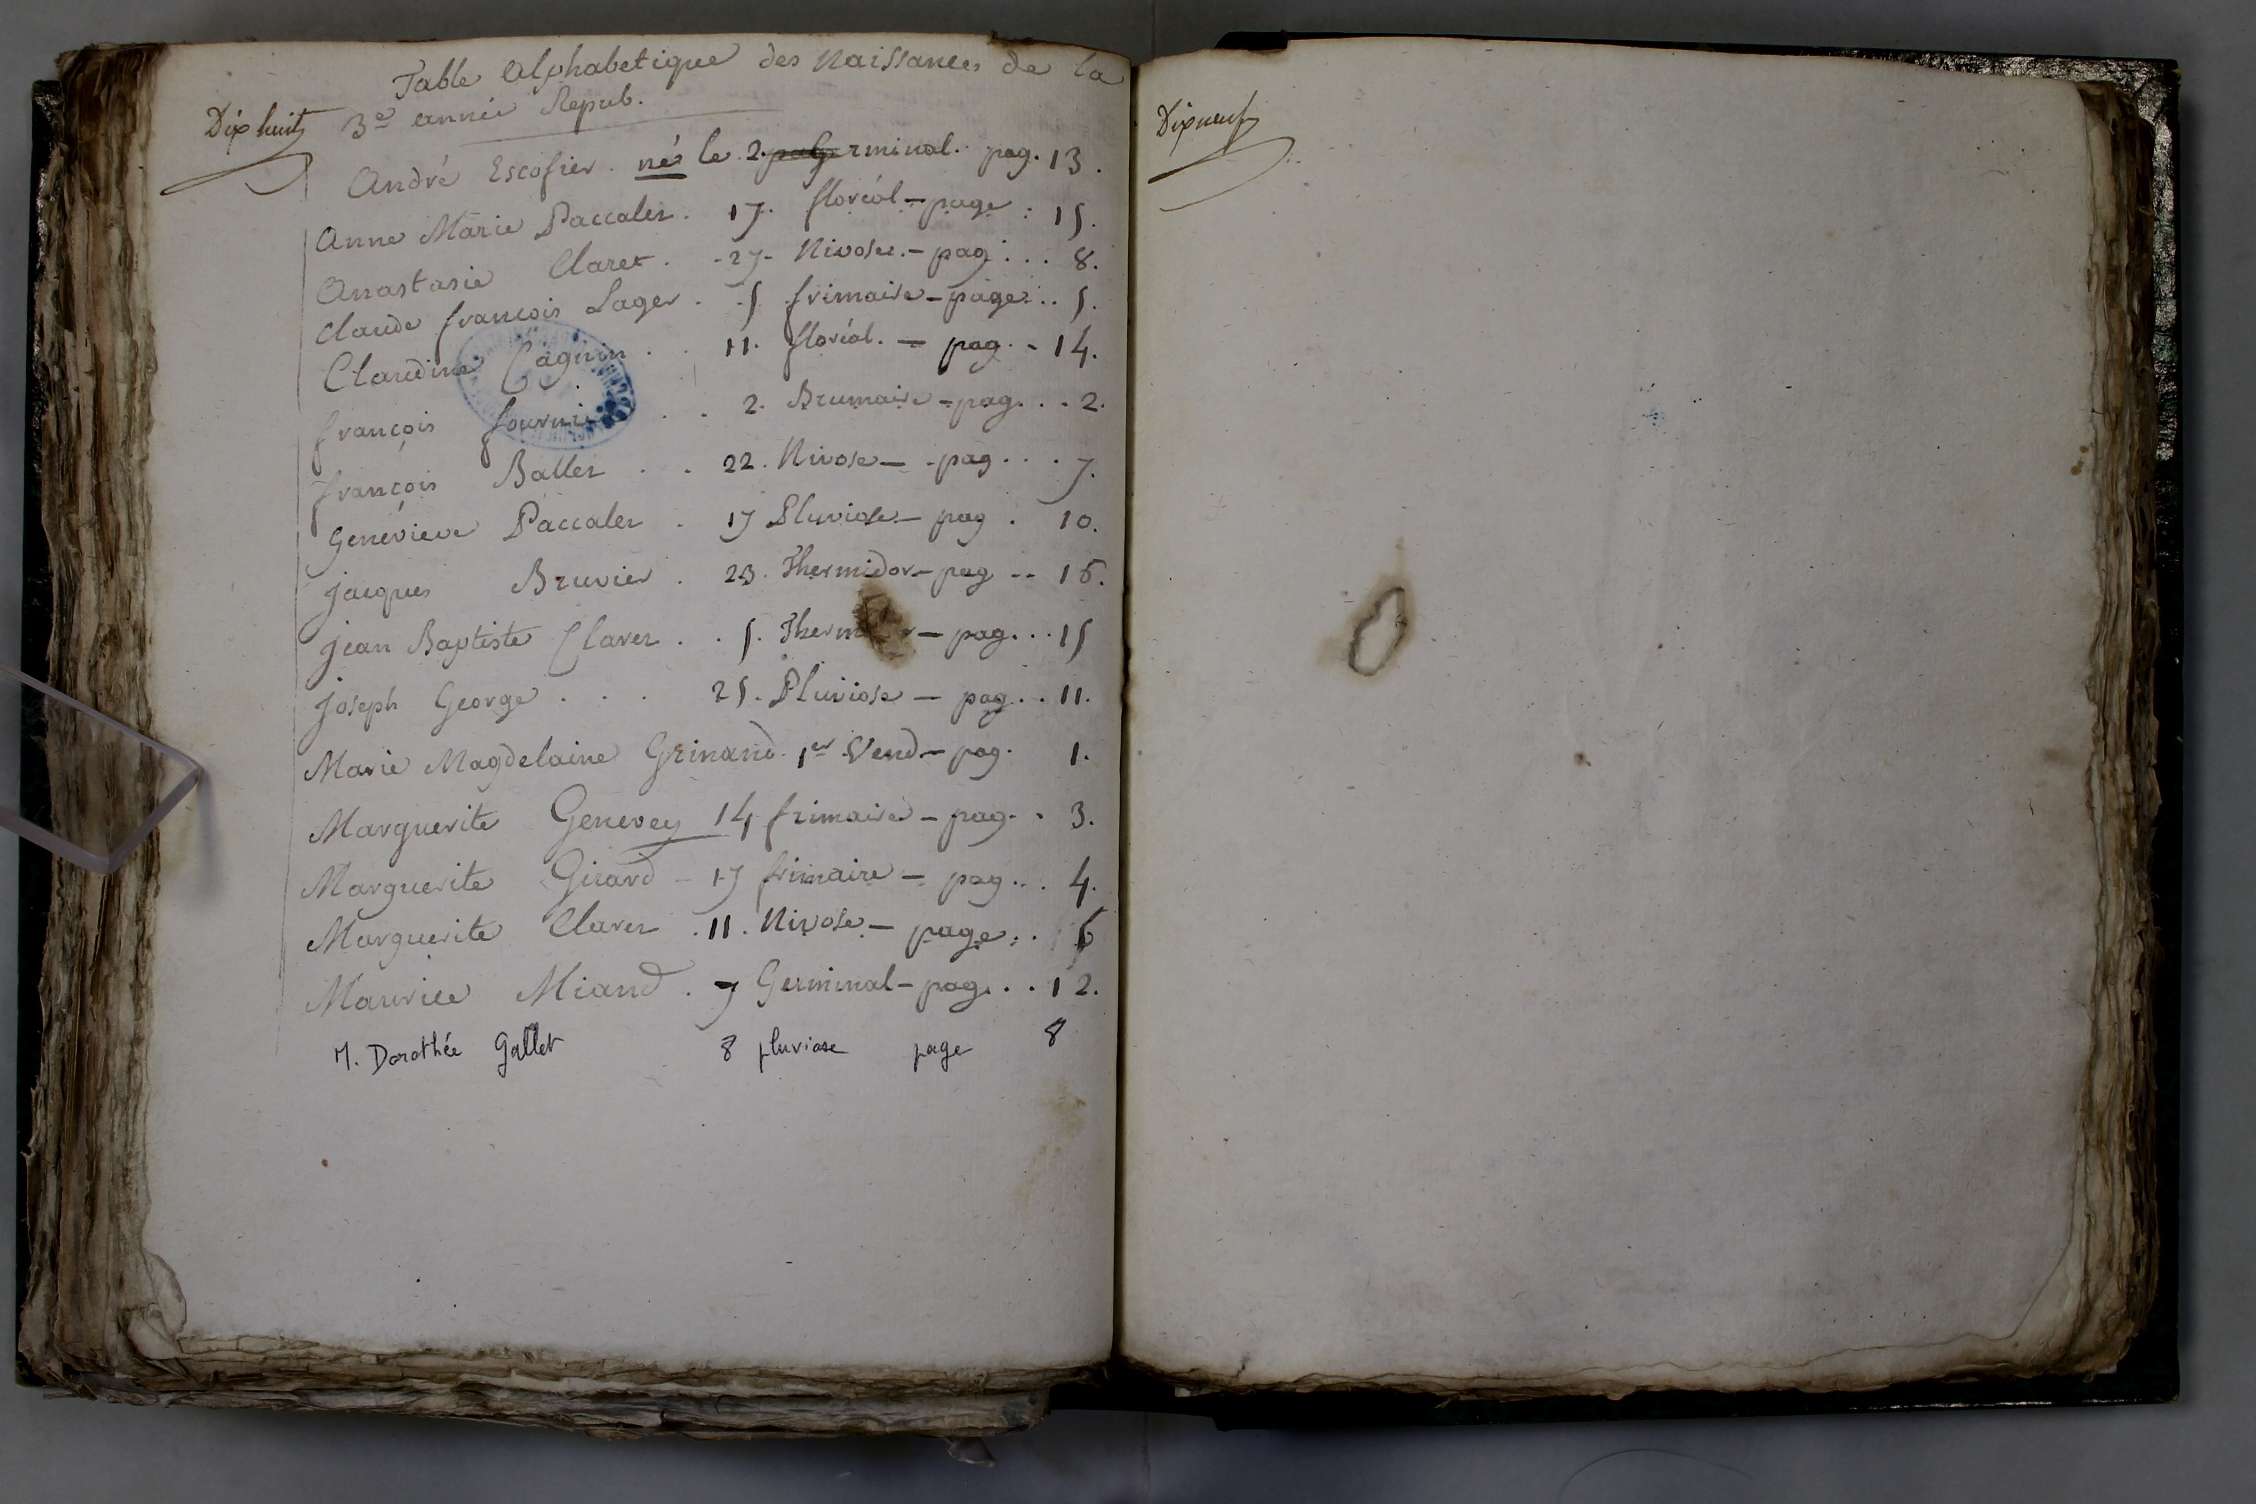 Table Alphabetique des Naissances de la
Dix huit 3e année Repub.
André Escofier. né le 2. germinal. pag. 13.
Anne Marie Paccalet. 17. floréal - page : 15.
Anastasie Claret. - 27 - Nivose. - pag : . . 8.
Claude françois Lager. . 5 frimaire - page . . 5.
Claudine Cagnin . . 11. floréal. - pag. - 14.
françois fournier . . 2. Brumaire - pag. . . 2.
françois Ballet . . 22. Nivose - pag. . . 7.
Genevieve Paccalet . 17 Pluviose - pag . 10.
jacques Bruvier . 23. Thermidor - pag - - 16.
jean Baptiste Claret . . 5. Thermidor - pag. . . 15
joseph George . . . 25. Pluviose - pag. . . 11.
Marie Magdelaine Grinand. 1er Vend - pag. 1.
Marguerite Genevey 14 frimaire - pag. . 3.
Marguerite Girard - 17 frimaire - pag. . . 4.
Marguerite Claret . 11. Nivose - page : . 6
Maurice Miand . 7 Germinal - pag. . . 12.
M. Dorothée Gallet 8 pluviose page 8
Dixneuf